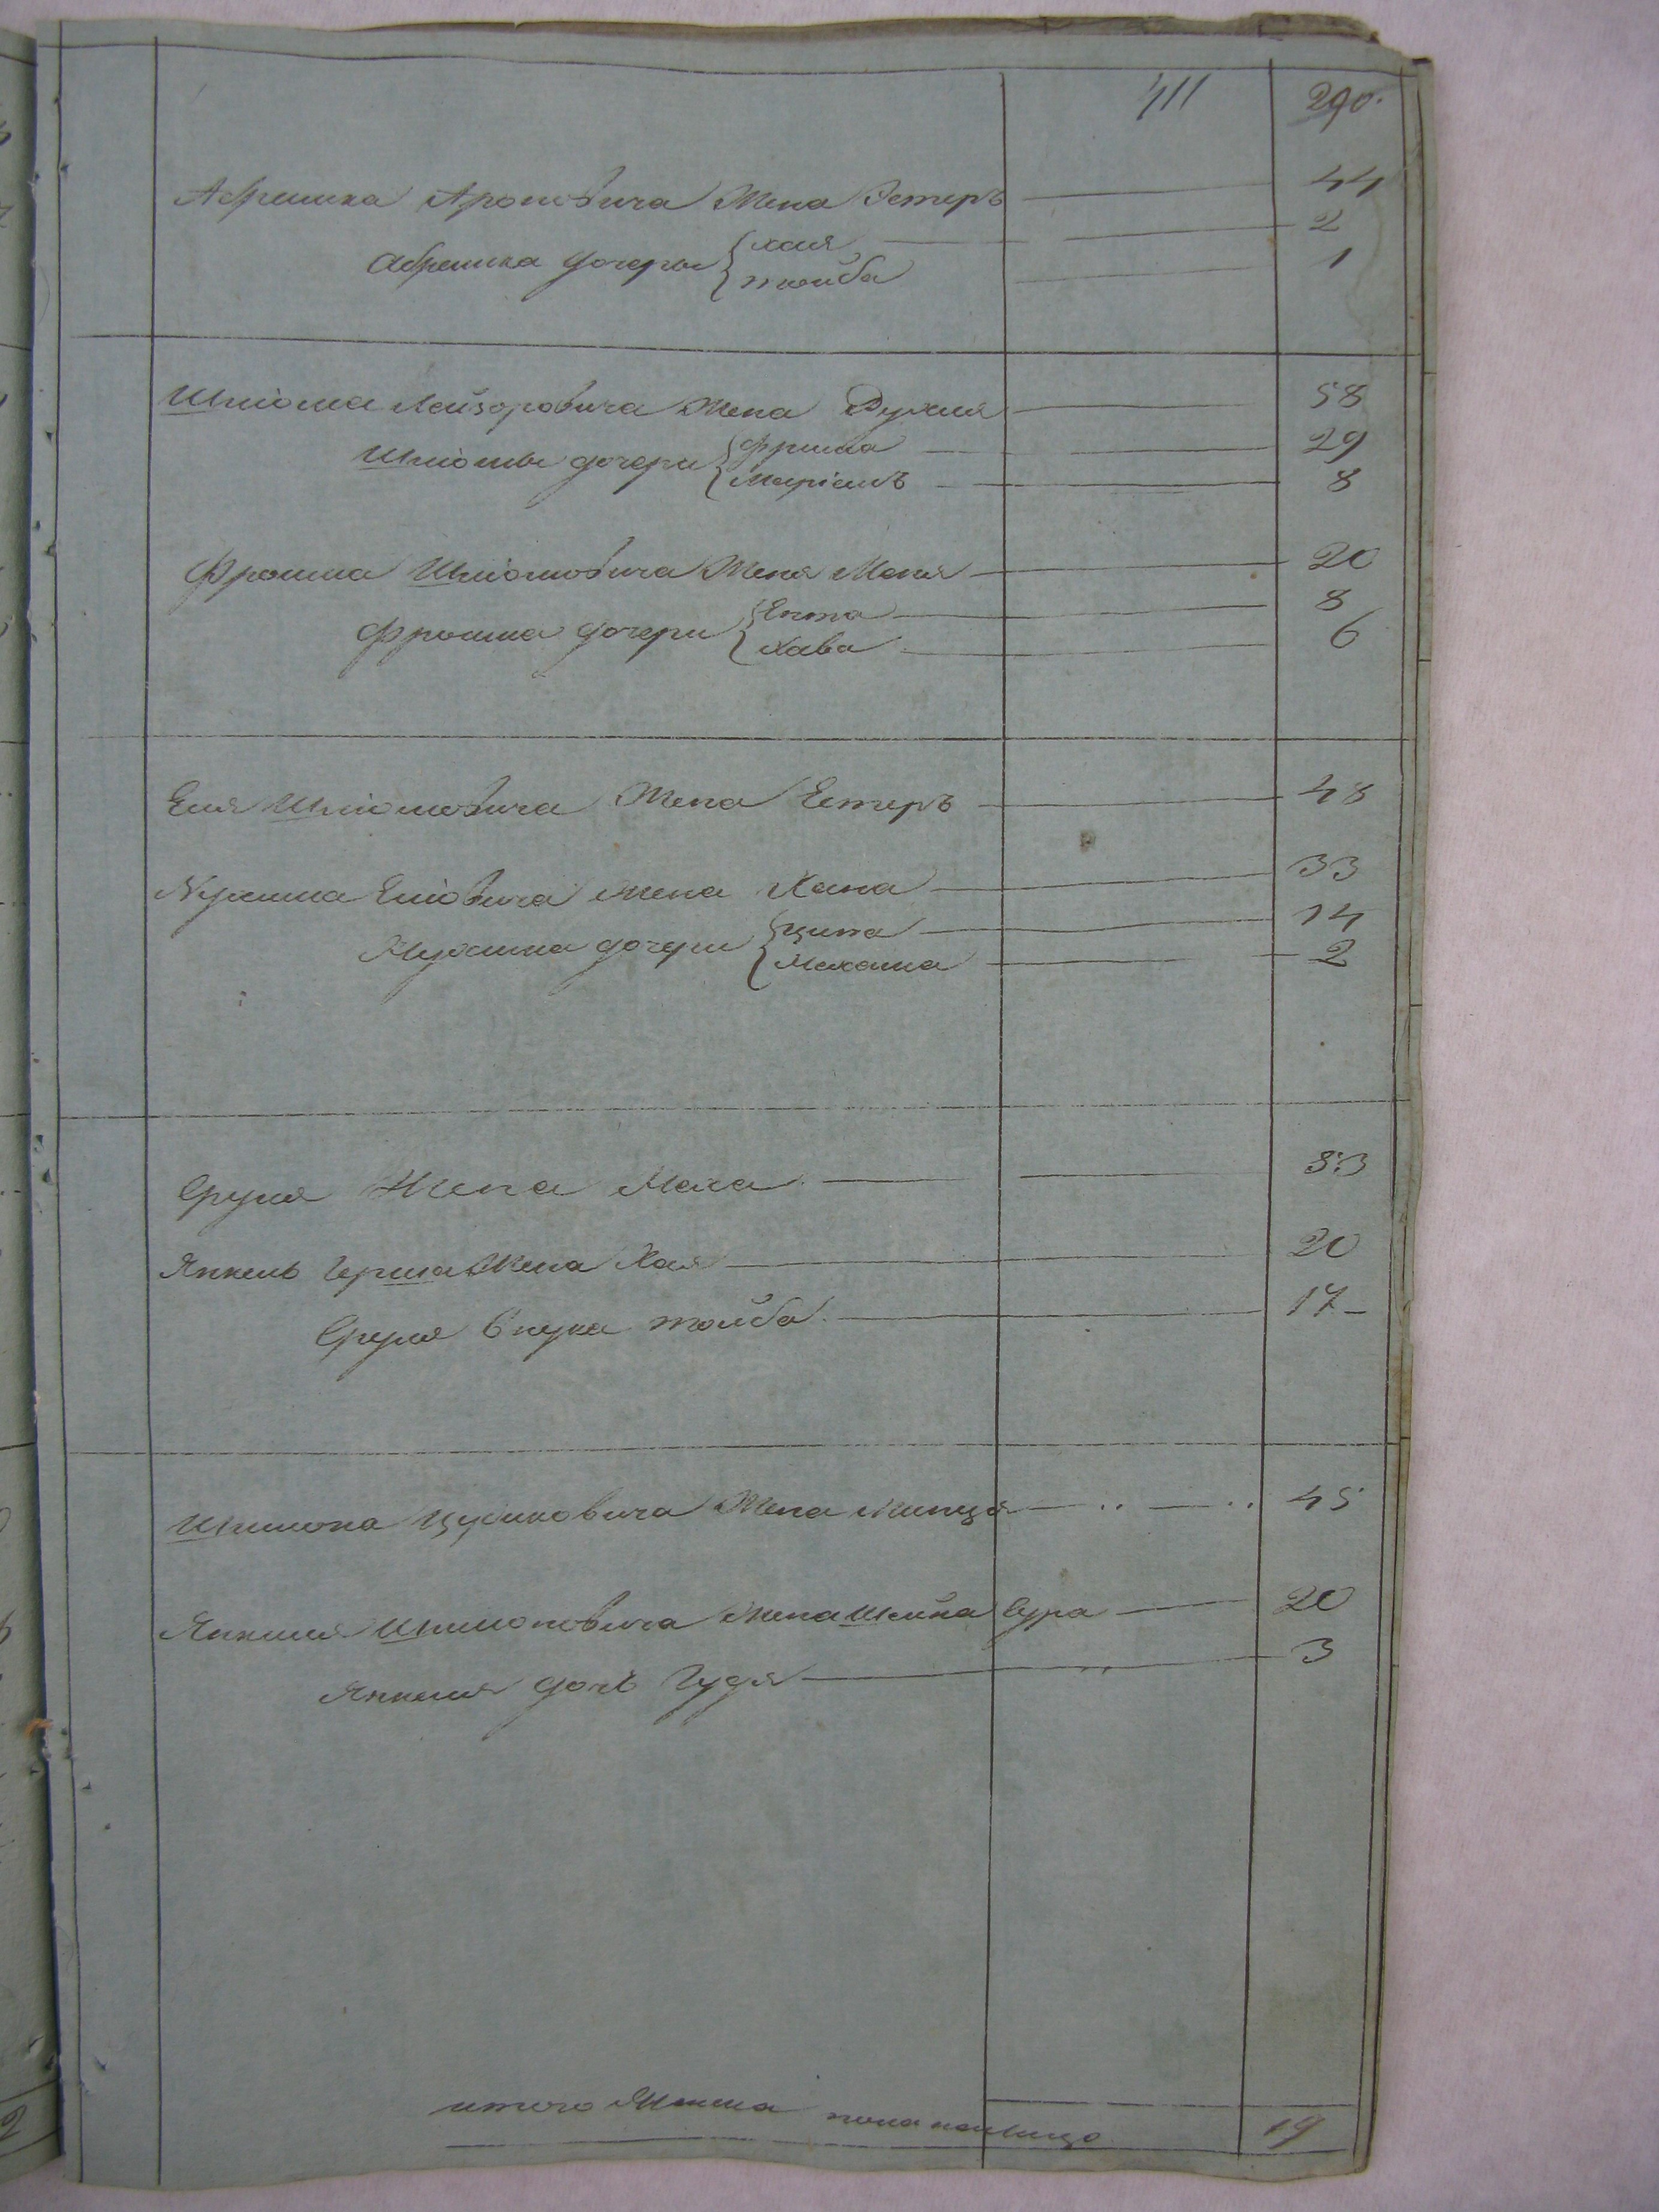 411 290.
Абрамка Ароновича Жена Эстеръ 44
Абрамка дочеры Хая 2
тойба 1
Шліома Лейзоровича Жена Рухля 58
Шліомы дочери Фрума 29
Маріамъ 8
Фроима Шліомовича Жена Маня 20
Фроима дочери Ента 8
Хава 6
Еля Шліомовича Жена Естеръ 48
Нухима Еліовича Жена Хана 33
Нухима дочери Ципа 14
Малка 2
Сруля Жена 53
Янкель Герша Жена Хая 20
Сруля внука тойба 17
Шимона Жена Минця 45
Янкеля Шимоновича Жена Шейна Сура 20
Янкеля дочь Гудя 3
итого Женска пола налицо 19